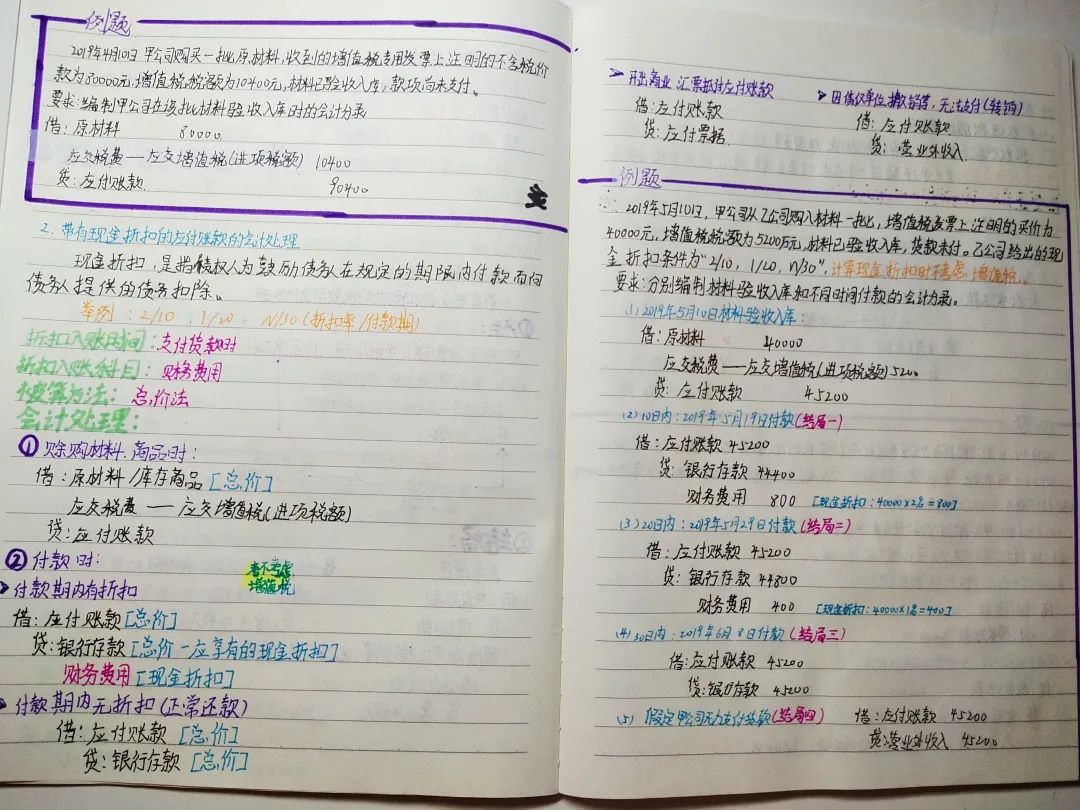 例题
2019年4月10日 甲公司购买一批原材料,收到的增值税专用发票上注明的不含税价
款为80000元,增值税税额为10400元,材料已验收入库,款项尚未支付。
要求:编制甲公司在该批材料验收入库时的会计分录
借:原材料 80000
应交税费——应交增值税(进项税额) 10400
贷:应付账款 90400
2. 带有现金折扣的应付账款的会计处理
现金折扣,是指债权人为鼓励债务人在规定的期限内付款而向
债务人提供的债务扣除。
举例:2/10、1/20、N/30(折扣率/付款期)
折扣入账时间:支付货款时
折扣入账科目:财务费用
核算方法:总价法
会计处理:
① 赊购材料、商品时:
借:原材料/库存商品[总价]
应交税费——应交增值税(进项税额)
贷:应付账款
② 付款时:
考不考虑
增值税
付款期内有折扣
借:应付账款[总价]
贷:银行存款[总价-应享有的现金折扣]
财务费用[现金折扣]
付款期内无折扣(正常还款)
借:应付账款[总价]
贷:银行存款[总价]
开出商业汇票抵付应付账款
借:应付账款
贷:应付票据
因债权单位撤销等,无法支付(转销)
借:应付账款
贷:营业外收入
例题
2019年5月10日,甲公司从乙公司购入材料一批,增值税发票上注明的买价为
40000元,增值税税额为5200万元,材料已验收入库,货款未付。乙公司给出的现
金折扣条件为"2/10,1/20,n/30",计算现金折扣时不考虑增值税。
要求:分别编制材料验收入库和不同时间付款的会计分录。
(1)2019年5月10日材料验收入库:
借:原材料 40000
应交税费——应交增值税(进项税额)5200
贷:应付账款 45200
(2)10日内:2019年5月19日付款(结局一)
借:应付账款 45200
贷:银行存款 44400
财务费用 800 [现金折扣:40000×2%=800]
(3)20日内:2019年5月29日付款(结局二)
借:应付账款 45200
贷:银行存款 44800
财务费用 400 [现金折扣:40000×1%=400]
(4)30日内:2019年6月8日付款(结局三)
借:应付账款 45200
贷:银行存款 45200
(5)假定甲公司无力支付货款(结局四) 借:应付账款 45200
贷:营业外收入 45200